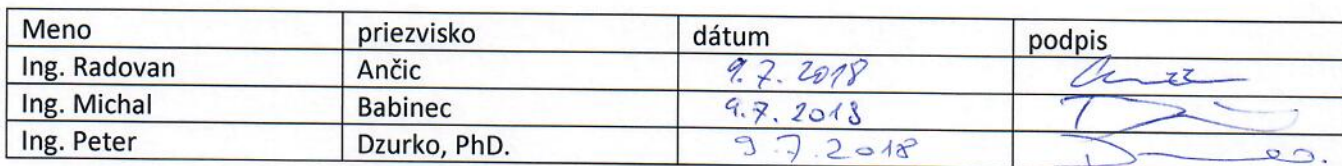 Meno priezvisko dátum podpis
Ing. Radovan Ančic 9.7.2018
Ing. Michal Babinec 9.7.2018
Ing. Peter Dzurko, PhD. 9.7.2018